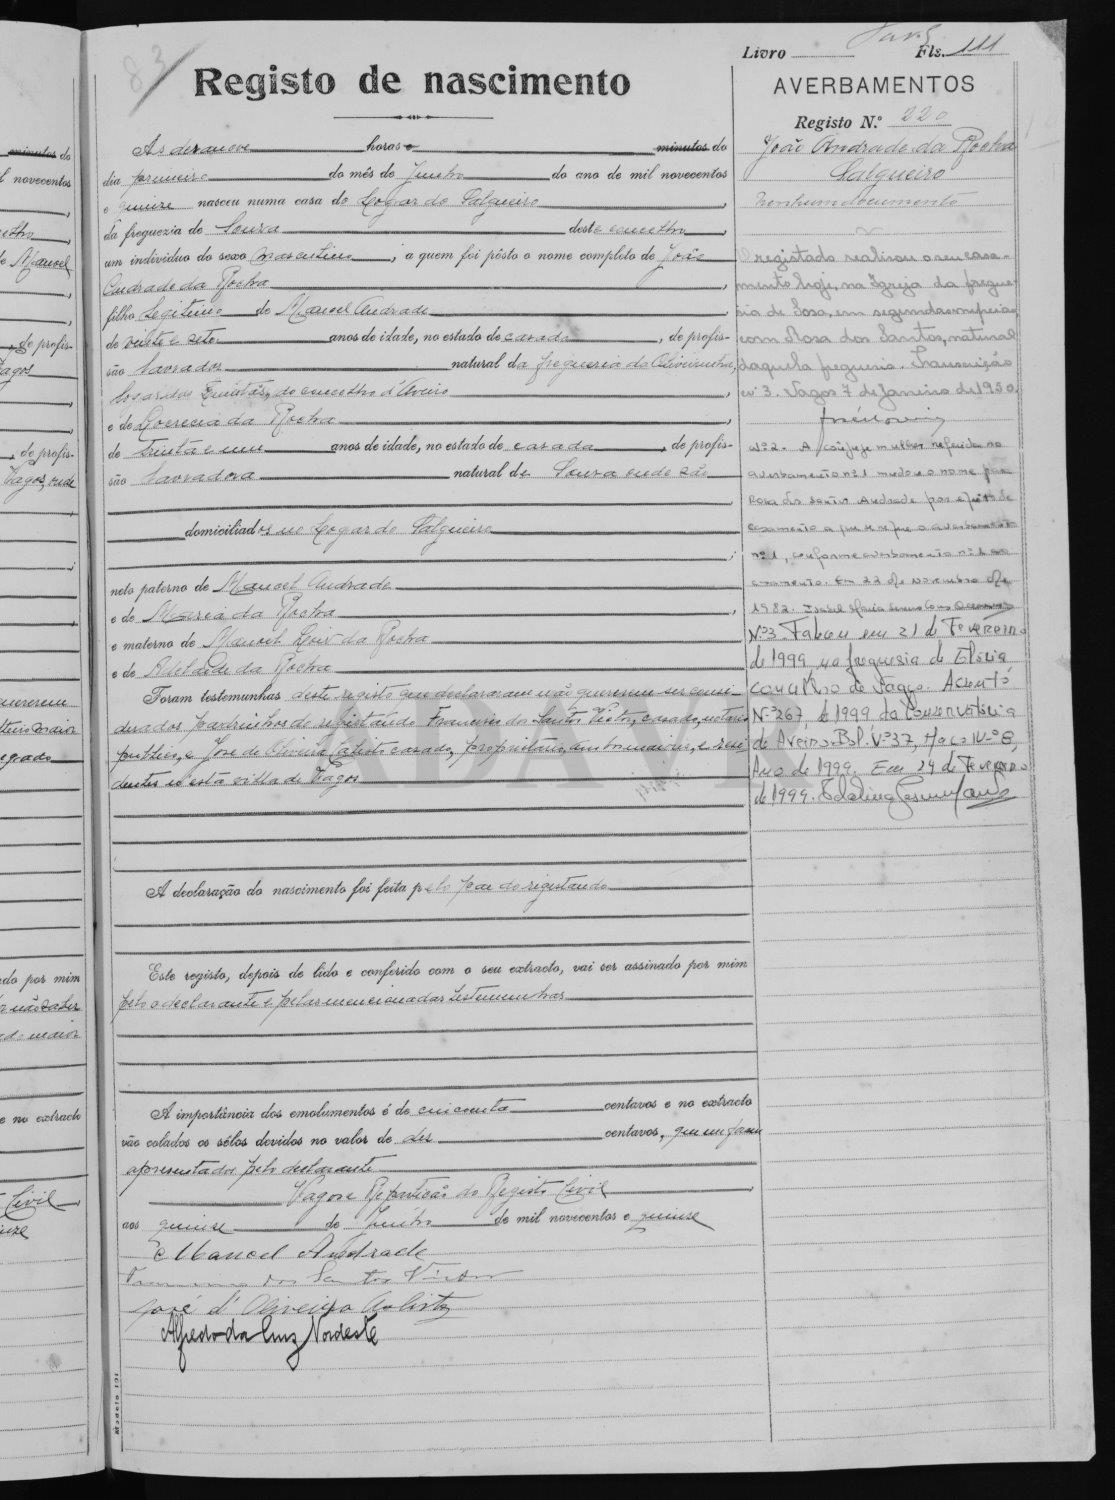 83
Registo de nascimento
Ás dezanove horas e minutos do
dia primeiro do mês de Junho do ano de mil novecentos
e quinze nasceu numa casa do Logar do Salgueiro,
da freguezia de Souza deste concelho,
um individuo do sexo masculino, a quem foi pôsto o nome completo de João
Andrade da Rocha,
filho legitimo de Manoel Andrade
de vinte e sete anos de idade, no estado de casado, de profis-
são lavrador natural da freguezia da Oliveirinha,
logar das Quintãs, do concelho d'Aveiro,
e de Locrecia da Rocha
de trinta e um anos de idade, no estado de casada, de profis-
são lavradora natural de Souza onde são
domiciliados no Logar do Salgueiro
;
neto paterno de Manoel Andrade
e de Maria da Rocha,
e materno de Manoel Luis da Rocha
e de Adelaide da Rocha
Foram testemunhas deste registo que declararam não quererem ser consi-
derados padrinhos do registando Francisco dos Santos Victor, casado, notario
publico, e José de Oliveira Calisto casado, proprietario, ambos maiores, e resi-
dentes nesta villa de Vagos
A declaração do nascimento foi feita pelo pae do registando
Este registo, depois de lido e conferido com o seu extracto, vai ser assinado por mim
pelo declarante e pelas mencionadas testemunhas
A importância dos emolumentos é de cincoenta centavos e no extracto
vão colados os sêlos devidos no valor de dez centavos, que me foram
apresentados pelo declarante
Vagos e Repartição do Registo Civil,
aos quinze de Junho de mil novecentos e quinze
Manoel Andrade
Francisco dos Santos Victor
José d'Oliveira Calisto
Alfredo da Cruz Nordeste
Modelo 131
Livro Fls. 111
AVERBAMENTOS
Registo N.º 220
João Andrade da Rocha
Salgueiro
Nenhum documento
O registado realisou o seu casa-
mento hoje, na Igreja da fregue-
sia de Sosa, em segundas nupcias
com Rosa dos Santos, natural
daquela freguesia. Transcrição
nº 3. Vagos 7 de Janeiro de 1950.
Nº 2. A conjuge mulher referida no
averbamento nº 1 mudou o nome para
Rosa dos Santos Andrade por efeito de
casamento a que se refere o averbamento
nº 1, conforme averbamento nº 1 ao
casamento. Em 22 de Novembro de
1982. Isabel Maria
Nº 3. Faleceu em 21 de Fevereiro
de 1999 na freguesia de Glória
concelho de Vagos. Assento
Nº 267, de 1999 da Conservatória
de Aveiro. Bol. Nº 37, Maço Nº 8,
Ano de 1999. Em 24 de Fevereiro
de 1999.
ADAVR
minutos do
l novecentos
Manoel
de profis-
Vagos
, de profis-
Vagos, onde
quererem
egrado
do por mim
e no extracto
Civil